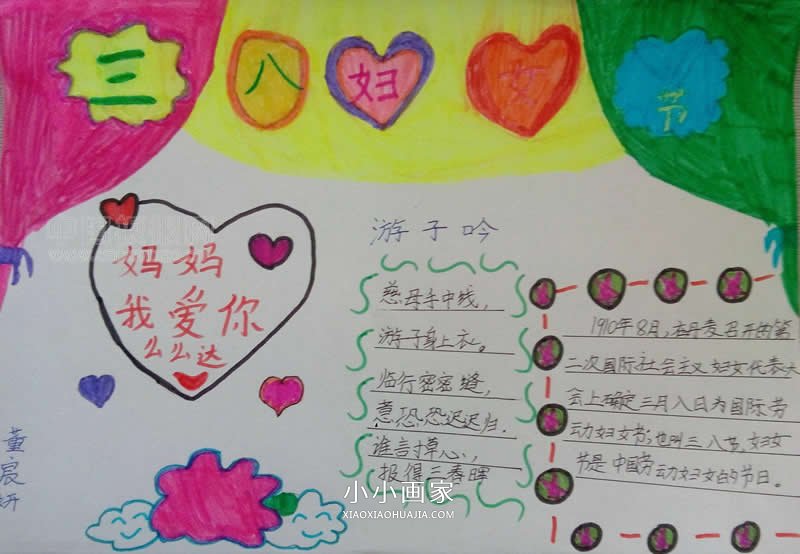 三八妇女节
妈妈
我爱你
么么达
游子吟
慈母手中线，
游子身上衣。
临行密密缝，
意恐恐迟迟归.
谁言寸草心，
报得三春晖
1910年8月，在丹麦召开的第
二次国际社会主义妇女代表大
会上确定三月八日为国际劳
动妇女节；也叫三八节，妇女
节是中国劳动妇女的节日。
董宸
小小画家
XIAOXIAOHUAJIA.COM